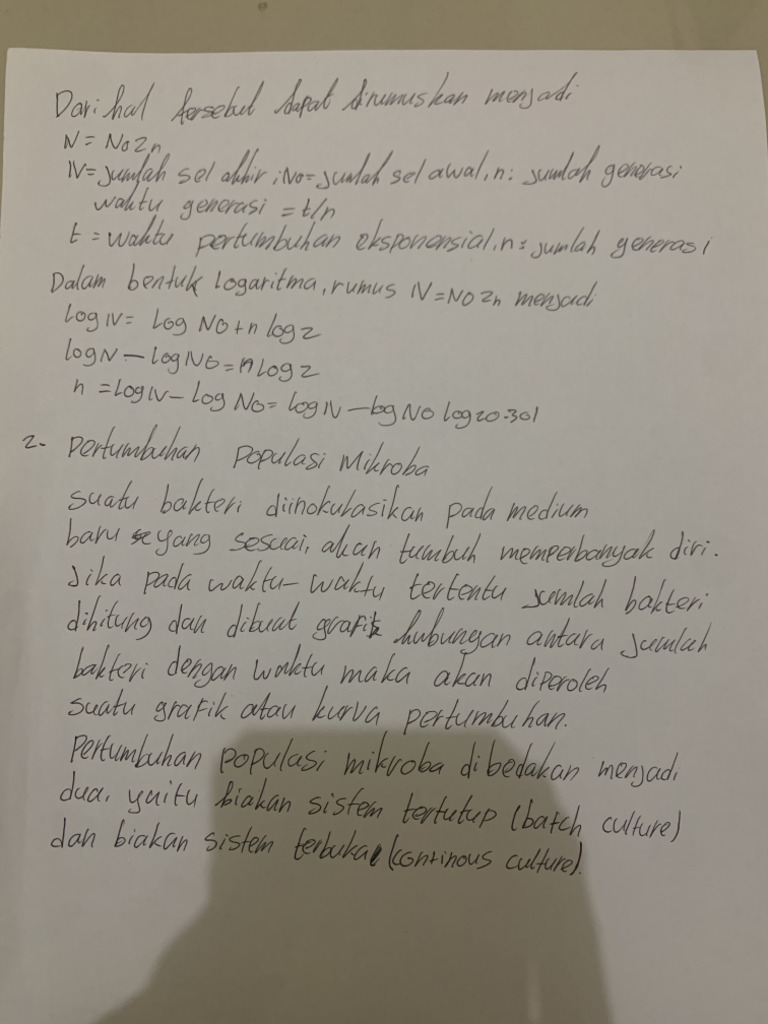 Dari hal tersebut dapat dirumuskan menjadi
N = No2n
N = jumlah sel akhir ; No = jumlah sel awal, n : jumlah generasi
waktu generasi = t/n
t = waktu pertumbuhan eksponensial, n = jumlah generasi
Dalam bentuk logaritma, rumus N = No2n menjadi
log N = log No + n log 2
log N - log No = n log 2
n = log N - log No = log N - log No log 20.301
2. Pertumbuhan Populasi Mikroba
suatu bakteri diinokulasikan pada medium
baru yang sesuai, akan tumbuh memperbanyak diri.
Jika pada waktu-waktu tertentu jumlah bakteri
dihitung dan dibuat grafik hubungan antara jumlah
bakteri dengan waktu maka akan diperoleh
suatu grafik atau kurva pertumbuhan.
Pertumbuhan populasi mikroba dibedakan menjadi
dua, yaitu biakan sistem tertutup (batch culture)
dan biakan sistem terbuka (continous culture).